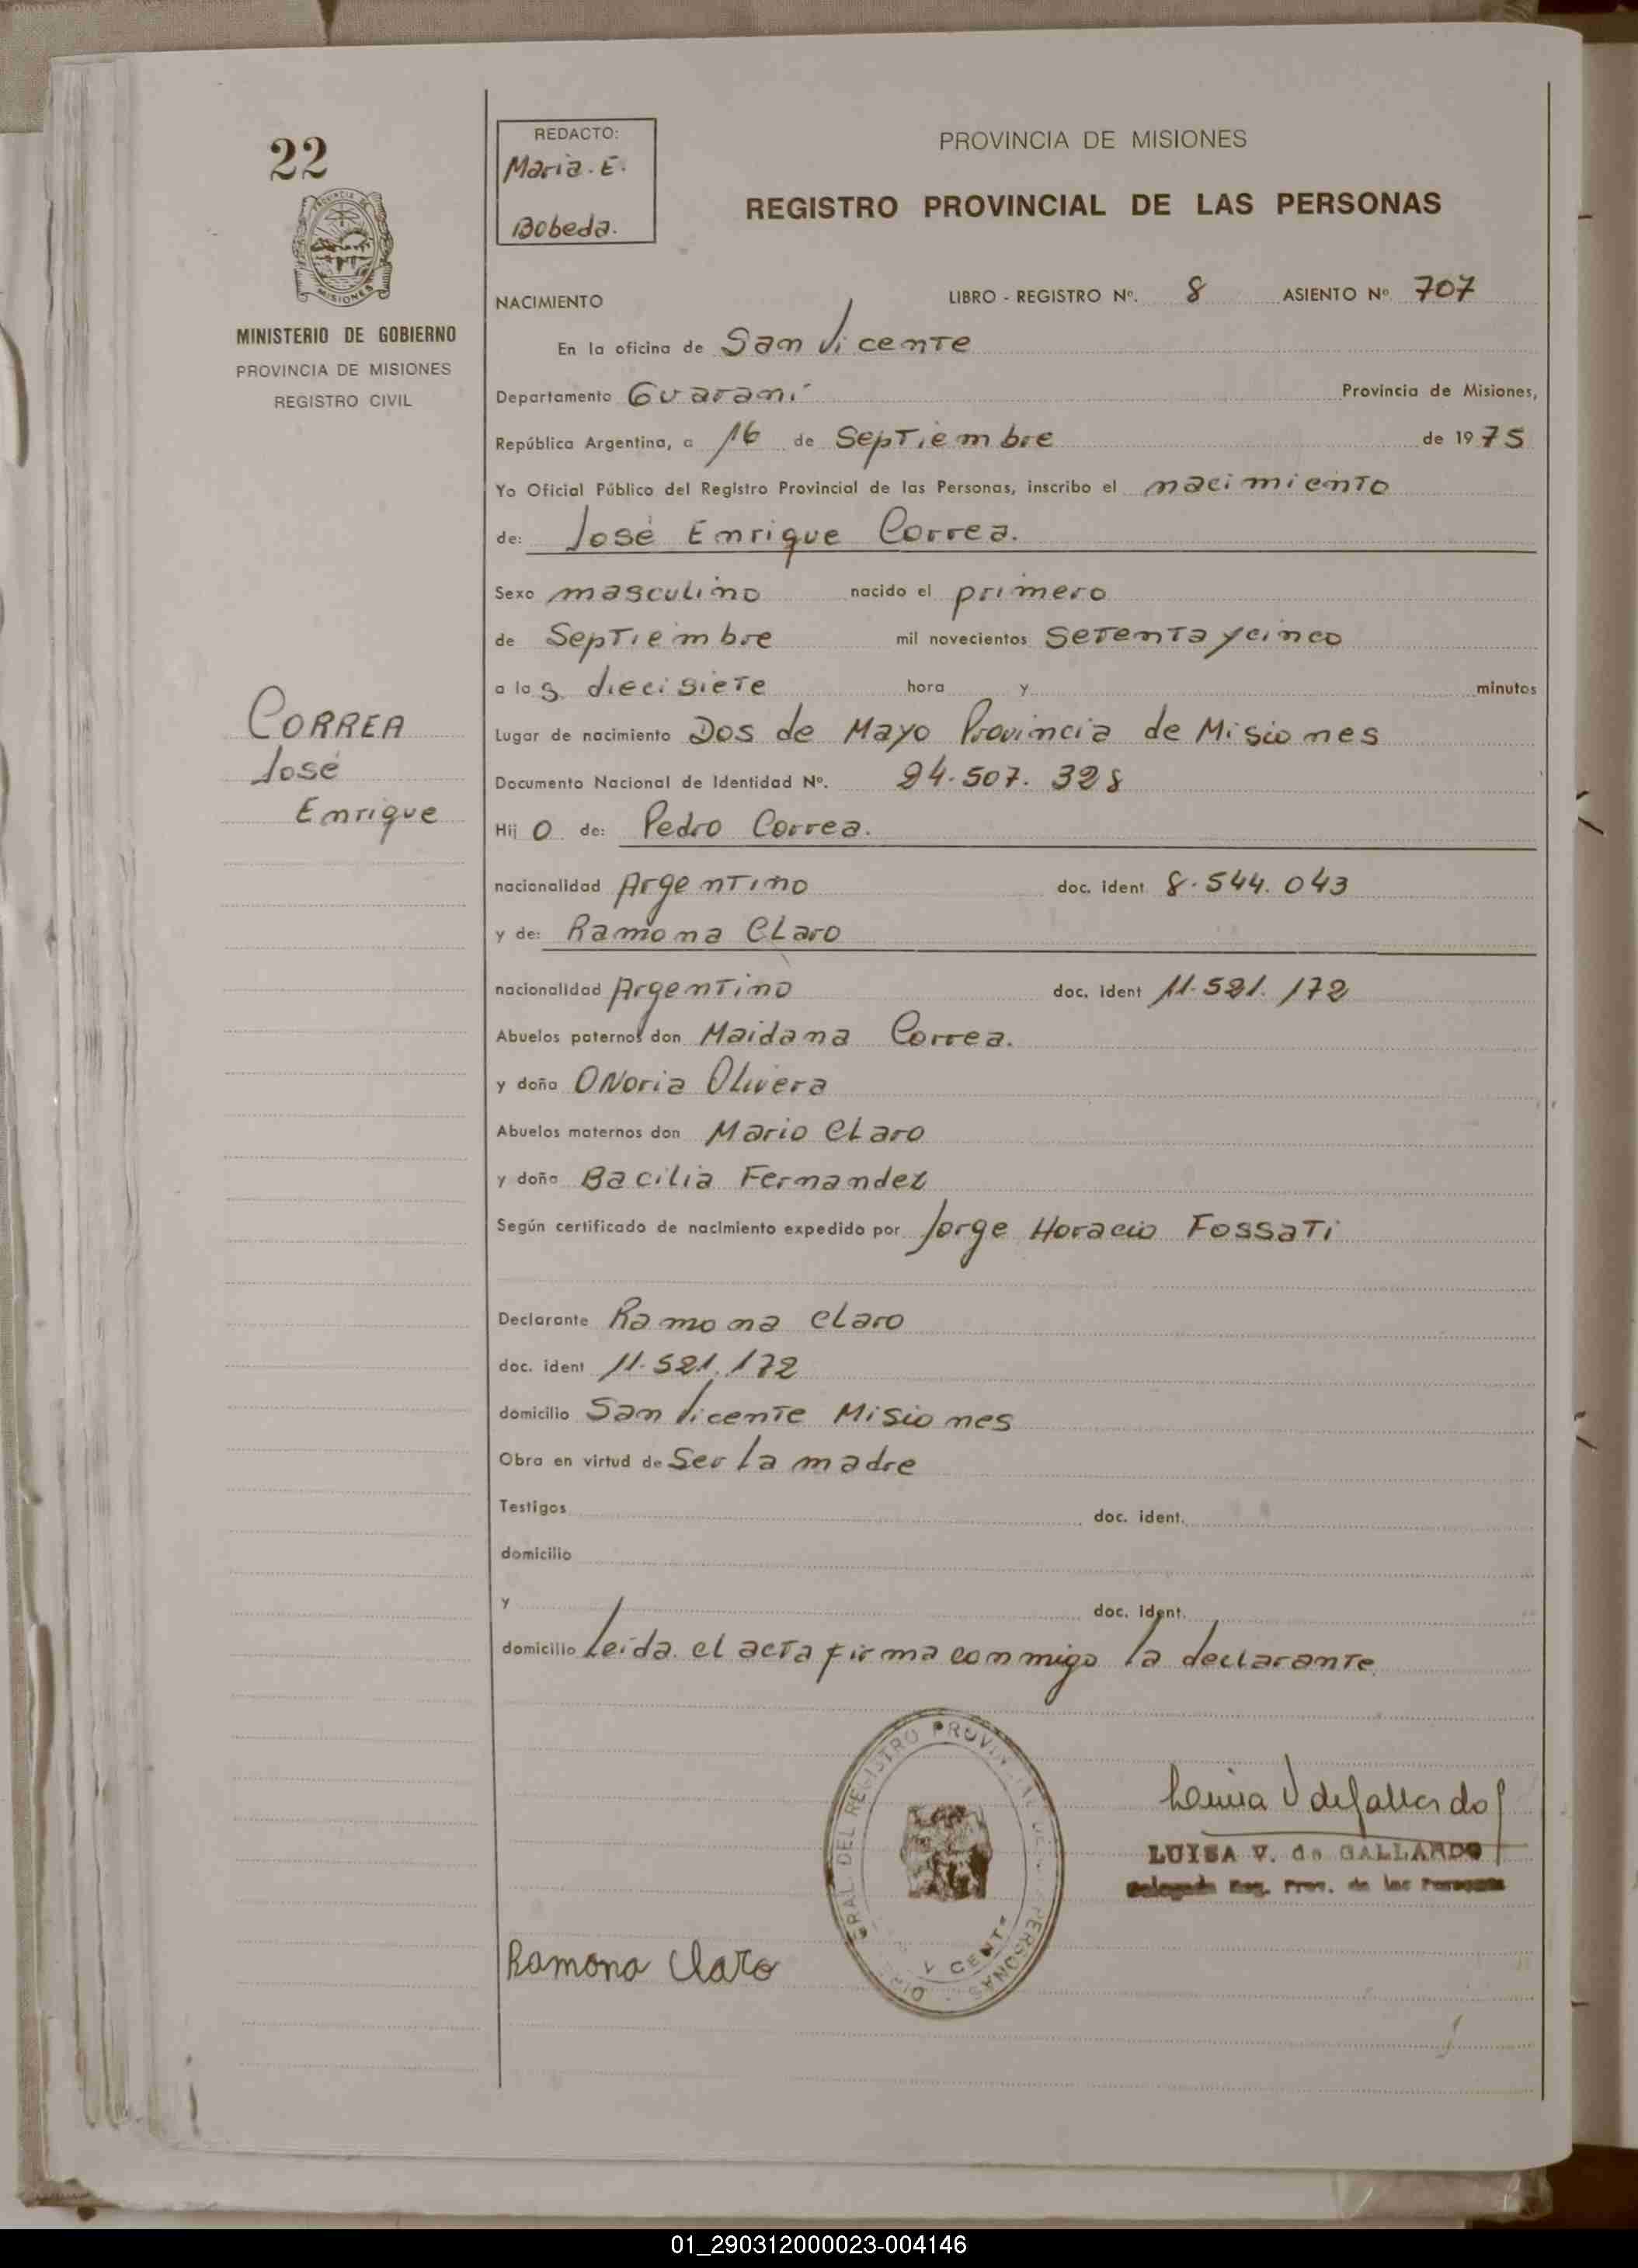 22
PROVINCIA DE
MISIONES
MINISTERIO DE GOBIERNO
PROVINCIA DE MISIONES
REGISTRO CIVIL
CORREA
José
Enrique
REDACTO:
Maria. E.
Bobeda.
PROVINCIA DE MISIONES
REGISTRO PROVINCIAL DE LAS PERSONAS
NACIMIENTO LIBRO - REGISTRO Nº. 8 ASIENTO Nº 707
En la oficina de San Vicente
Departamento Guaraní Provincia de Misiones,
República Argentina, a 16 de Septiembre de 1975
Yo Oficial Público del Registro Provincial de las Personas, inscribo el nacimiento
de: José Enrique Correa.
Sexo masculino nacido el primero
de Septiembre mil novecientos setenta y cinco
a las diecisiete hora y minutos
Lugar de nacimiento Dos de Mayo Provincia de Misiones
Documento Nacional de Identidad Nº. 24.507.328
Hijo de: Pedro Correa.
nacionalidad Argentino doc. ident 8.544.043
y de: Ramona Claro
nacionalidad Argentino doc. ident 11.521.172
Abuelos paternos don Maidana Correa.
y doña Onoria Olivera
Abuelos maternos don Mario Claro
y doña Bacilia Fernandez
Según certificado de nacimiento expedido por Jorge Horacio Fossati
Declarante Ramona Claro
doc. ident 11.521.172
domicilio San Vicente Misiones
Obra en virtud de Ser la madre
Testigos doc. ident.
domicilio
y doc. ident.
domicilio Leida el acta firma conmigo la declarante
GRAL. DEL REGISTRO PROVINCIAL DE LAS PERSONAS
Luisa V de Gallardo
LUISA V. de GALLARDO
Delegada Reg. Prov. de las Personas
Ramona Claro
01_290312000023-004146